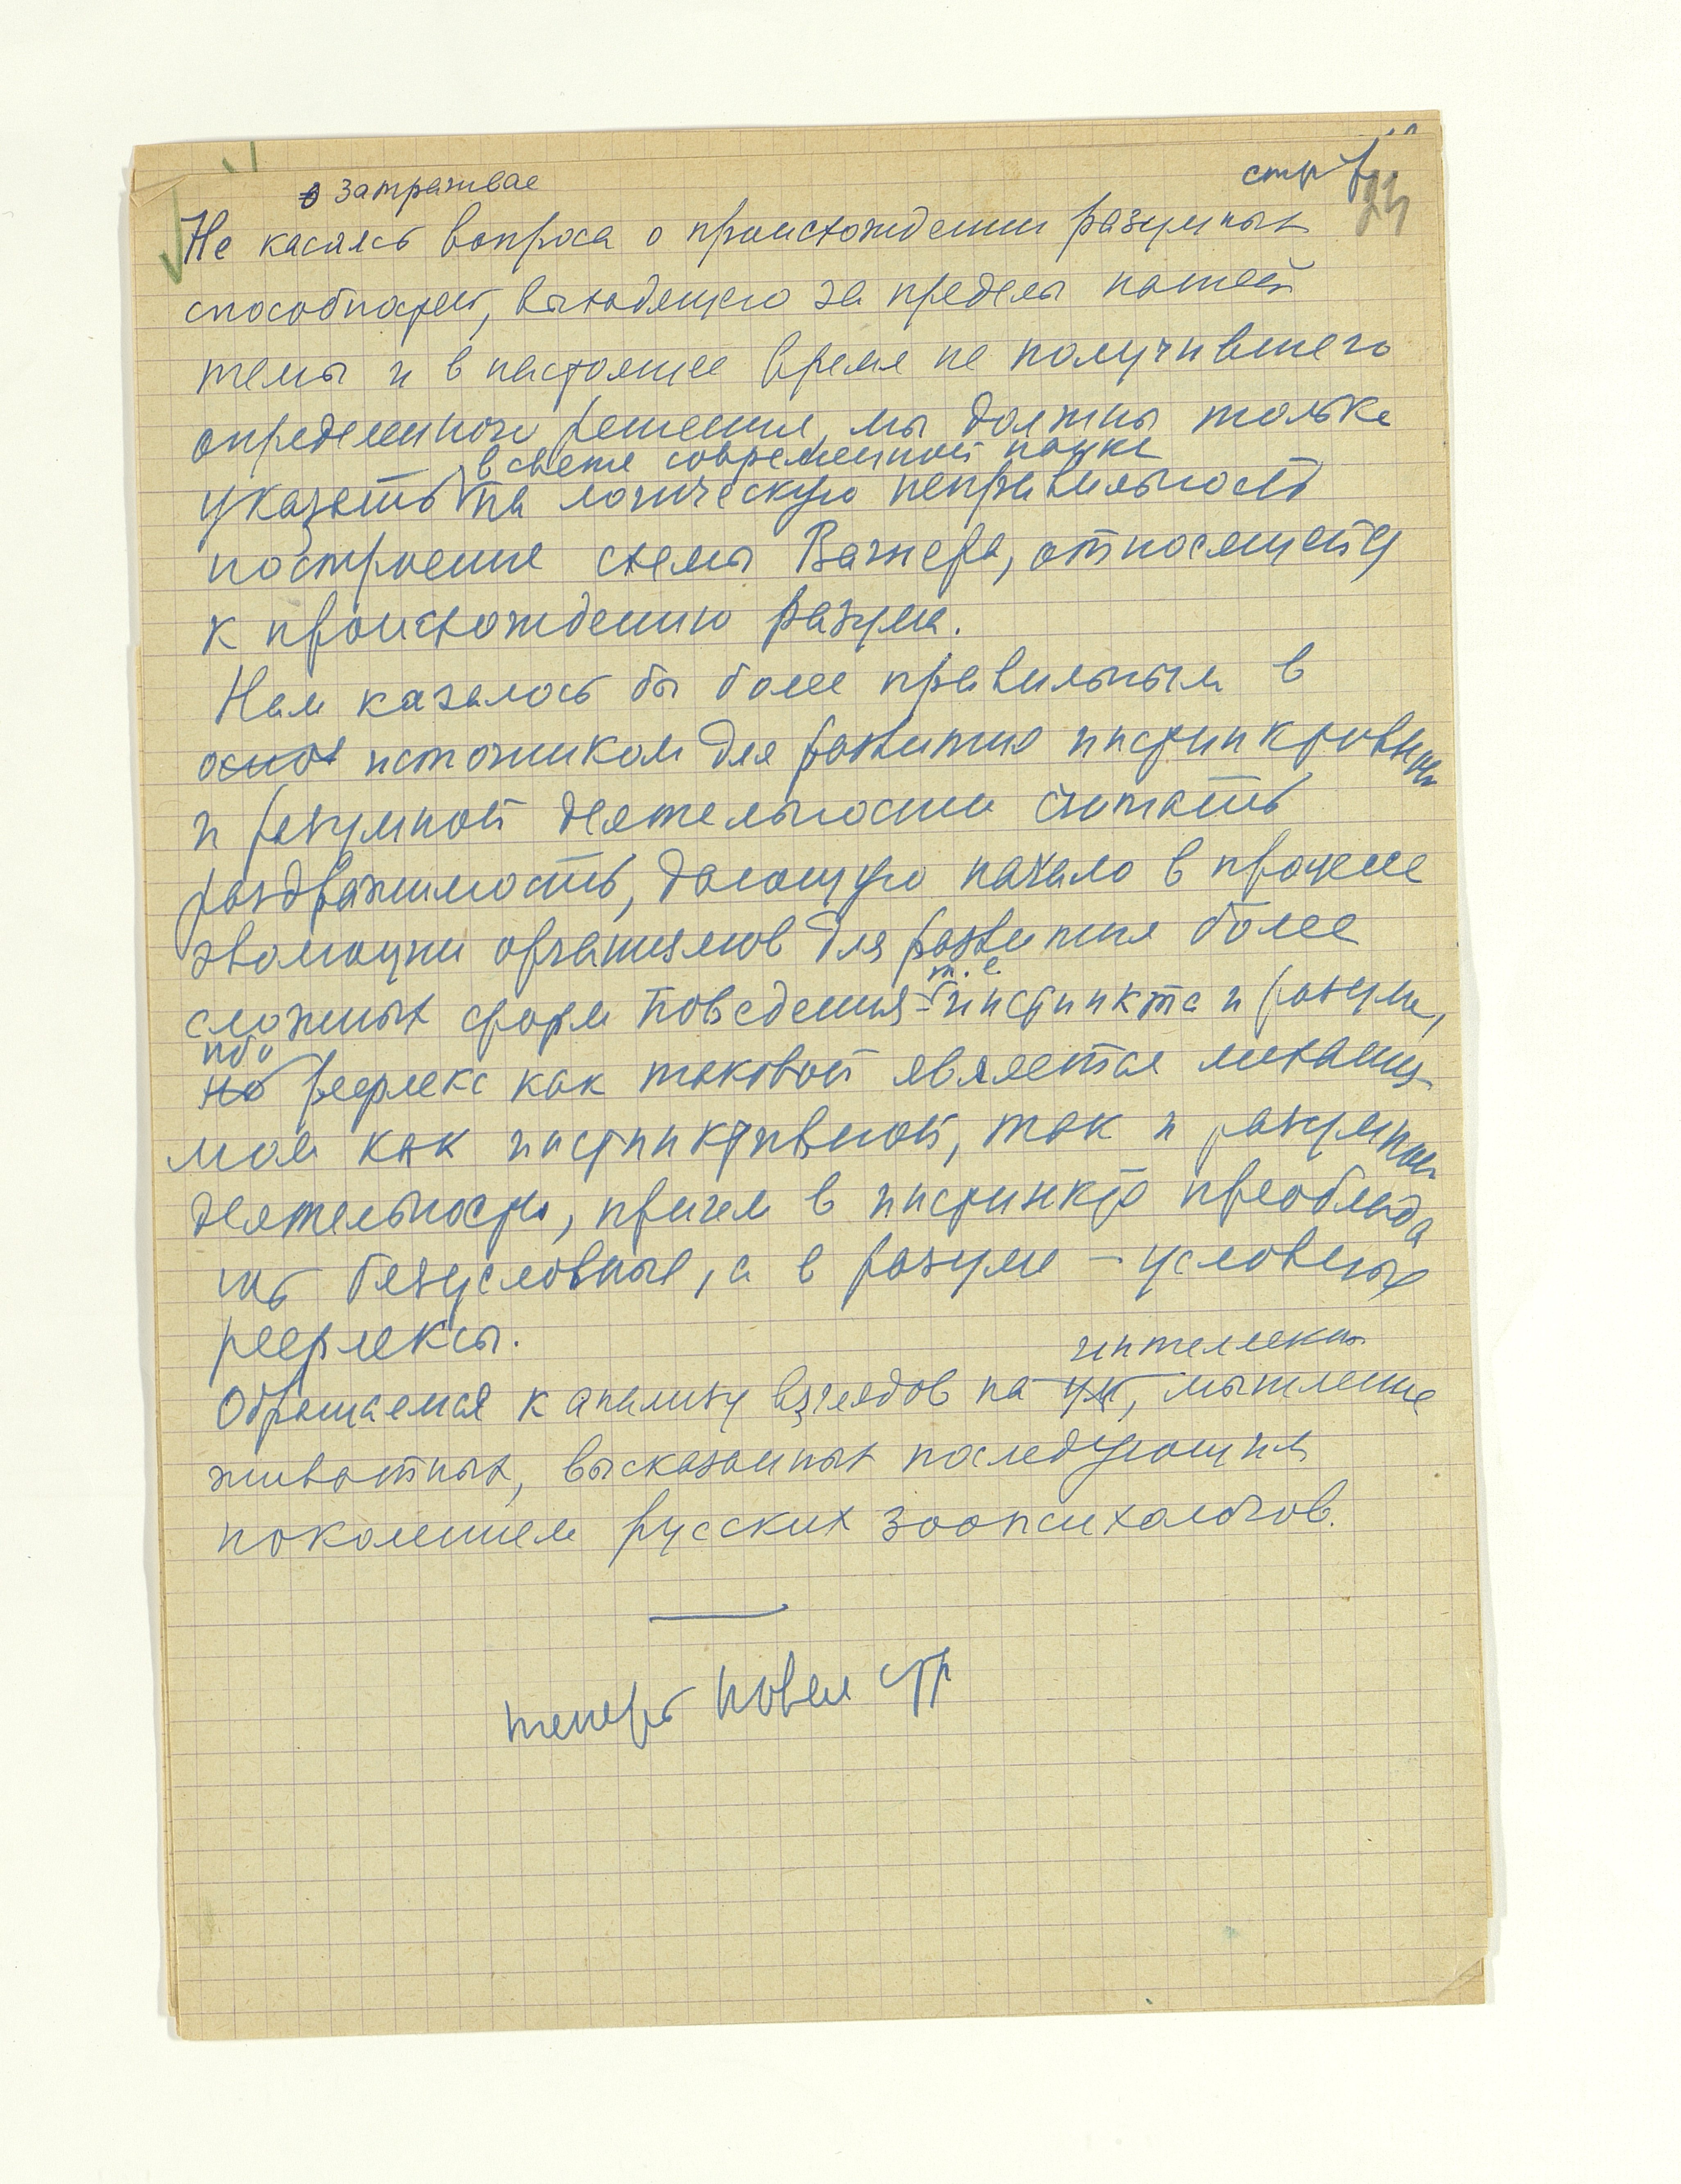 стр 7.
23
в затрагивае
Не касаясь вопроса о происхождении разумных
способностей, выходящего за пределы нашей
темы и в настоящее время не получившего
определенного решения, мы должны только
в свете современной науки
указать на логическую неправильность
построения схемы Вагнера, относящейся
к происхождению разума.
Нам казалось бы более правильным в
основ источником для развития инстинктивной
и разумной деятельности считать
раздражимость, дающую начало в процессе
эволюции организмов для развития более
т. е.
сложных форм поведения - инстинкта и разума,
ибо
но рефлекс как таковой является механиз-
мом как инстинктивной, так и разумной
деятельности, причем в инстинкте преоблада
ют безусловные, а в разуме – условные
рефлексы.
интеллект
Обращаемся к анализу взглядов на ум, мышление
животных, высказанных последующим
поколением русских зоопсихологов.
теперь новая стр